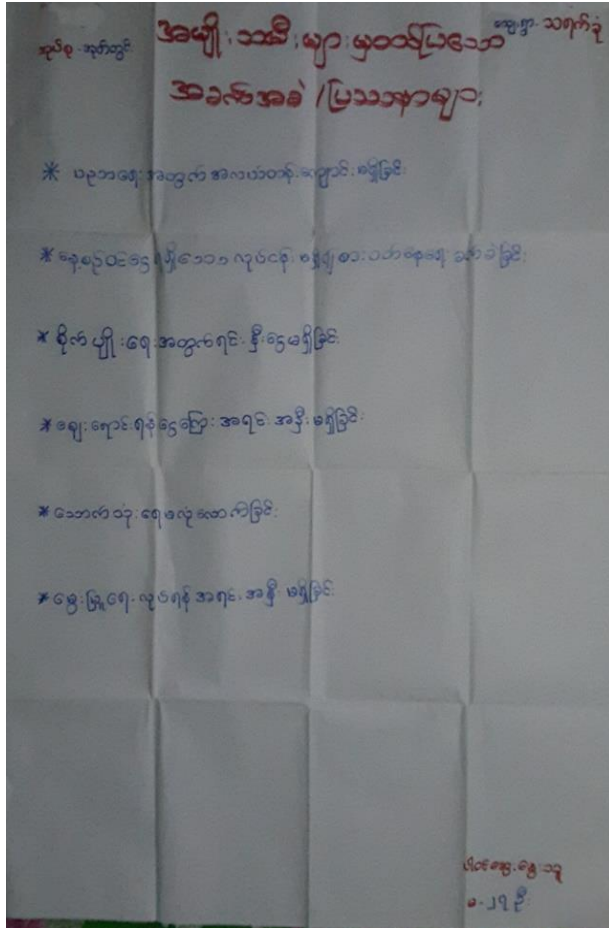 အုပ်စု - အုတ်တွင်း
ကျေးရွာ - သရက်ခုံ
အမျိုးသမီးများမှတင်ပြသော
အခက်အခဲ /ပြဿနာများ
* ပညာရေးအတွက် အလယ်တန်းကျောင်း မရှိခြင်း
* နေ့စဉ်ဝင်ငွေရရှိသော လုပ်ငန်း မရှိ၍ စားဝတ်နေရေး ခက်ခဲခြင်း
* စိုက်ပျိုးရေးအတွက် ရင်းနှီးငွေမရှိခြင်း
* ဈေးရောင်းရန် ငွေကြေး အရင်းအနှီးမရှိခြင်း
* သောက်သုံးရေမလုံလောက်ခြင်း
* မွေးမြူရေးလုပ်ရန် အရင်းအနှီး မရှိခြင်း
ပါဝင်ဆွေးနွေးသူ
မ - ၂၇ ဦး